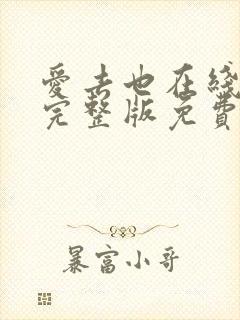 愛去也在綫
完整版免費
暴富小哥